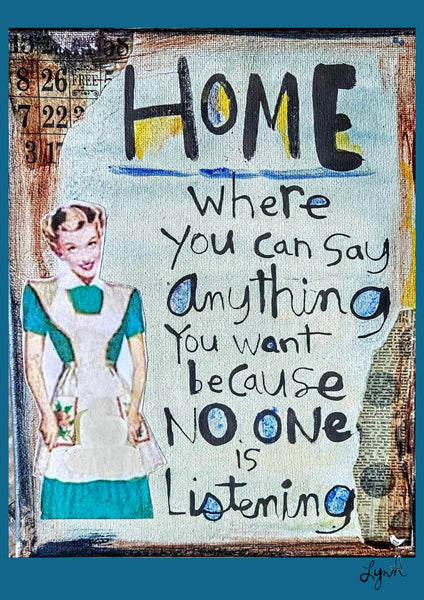 8 26 FREE
7 22
3 17
HOME
where
You can say
anything
You want
because
NO ONE
is
Listening
Lynn